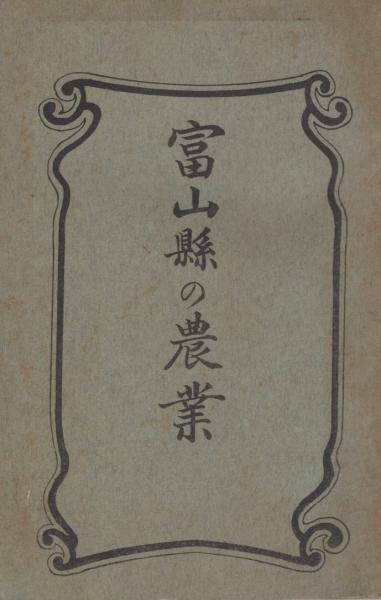 富山縣の農業